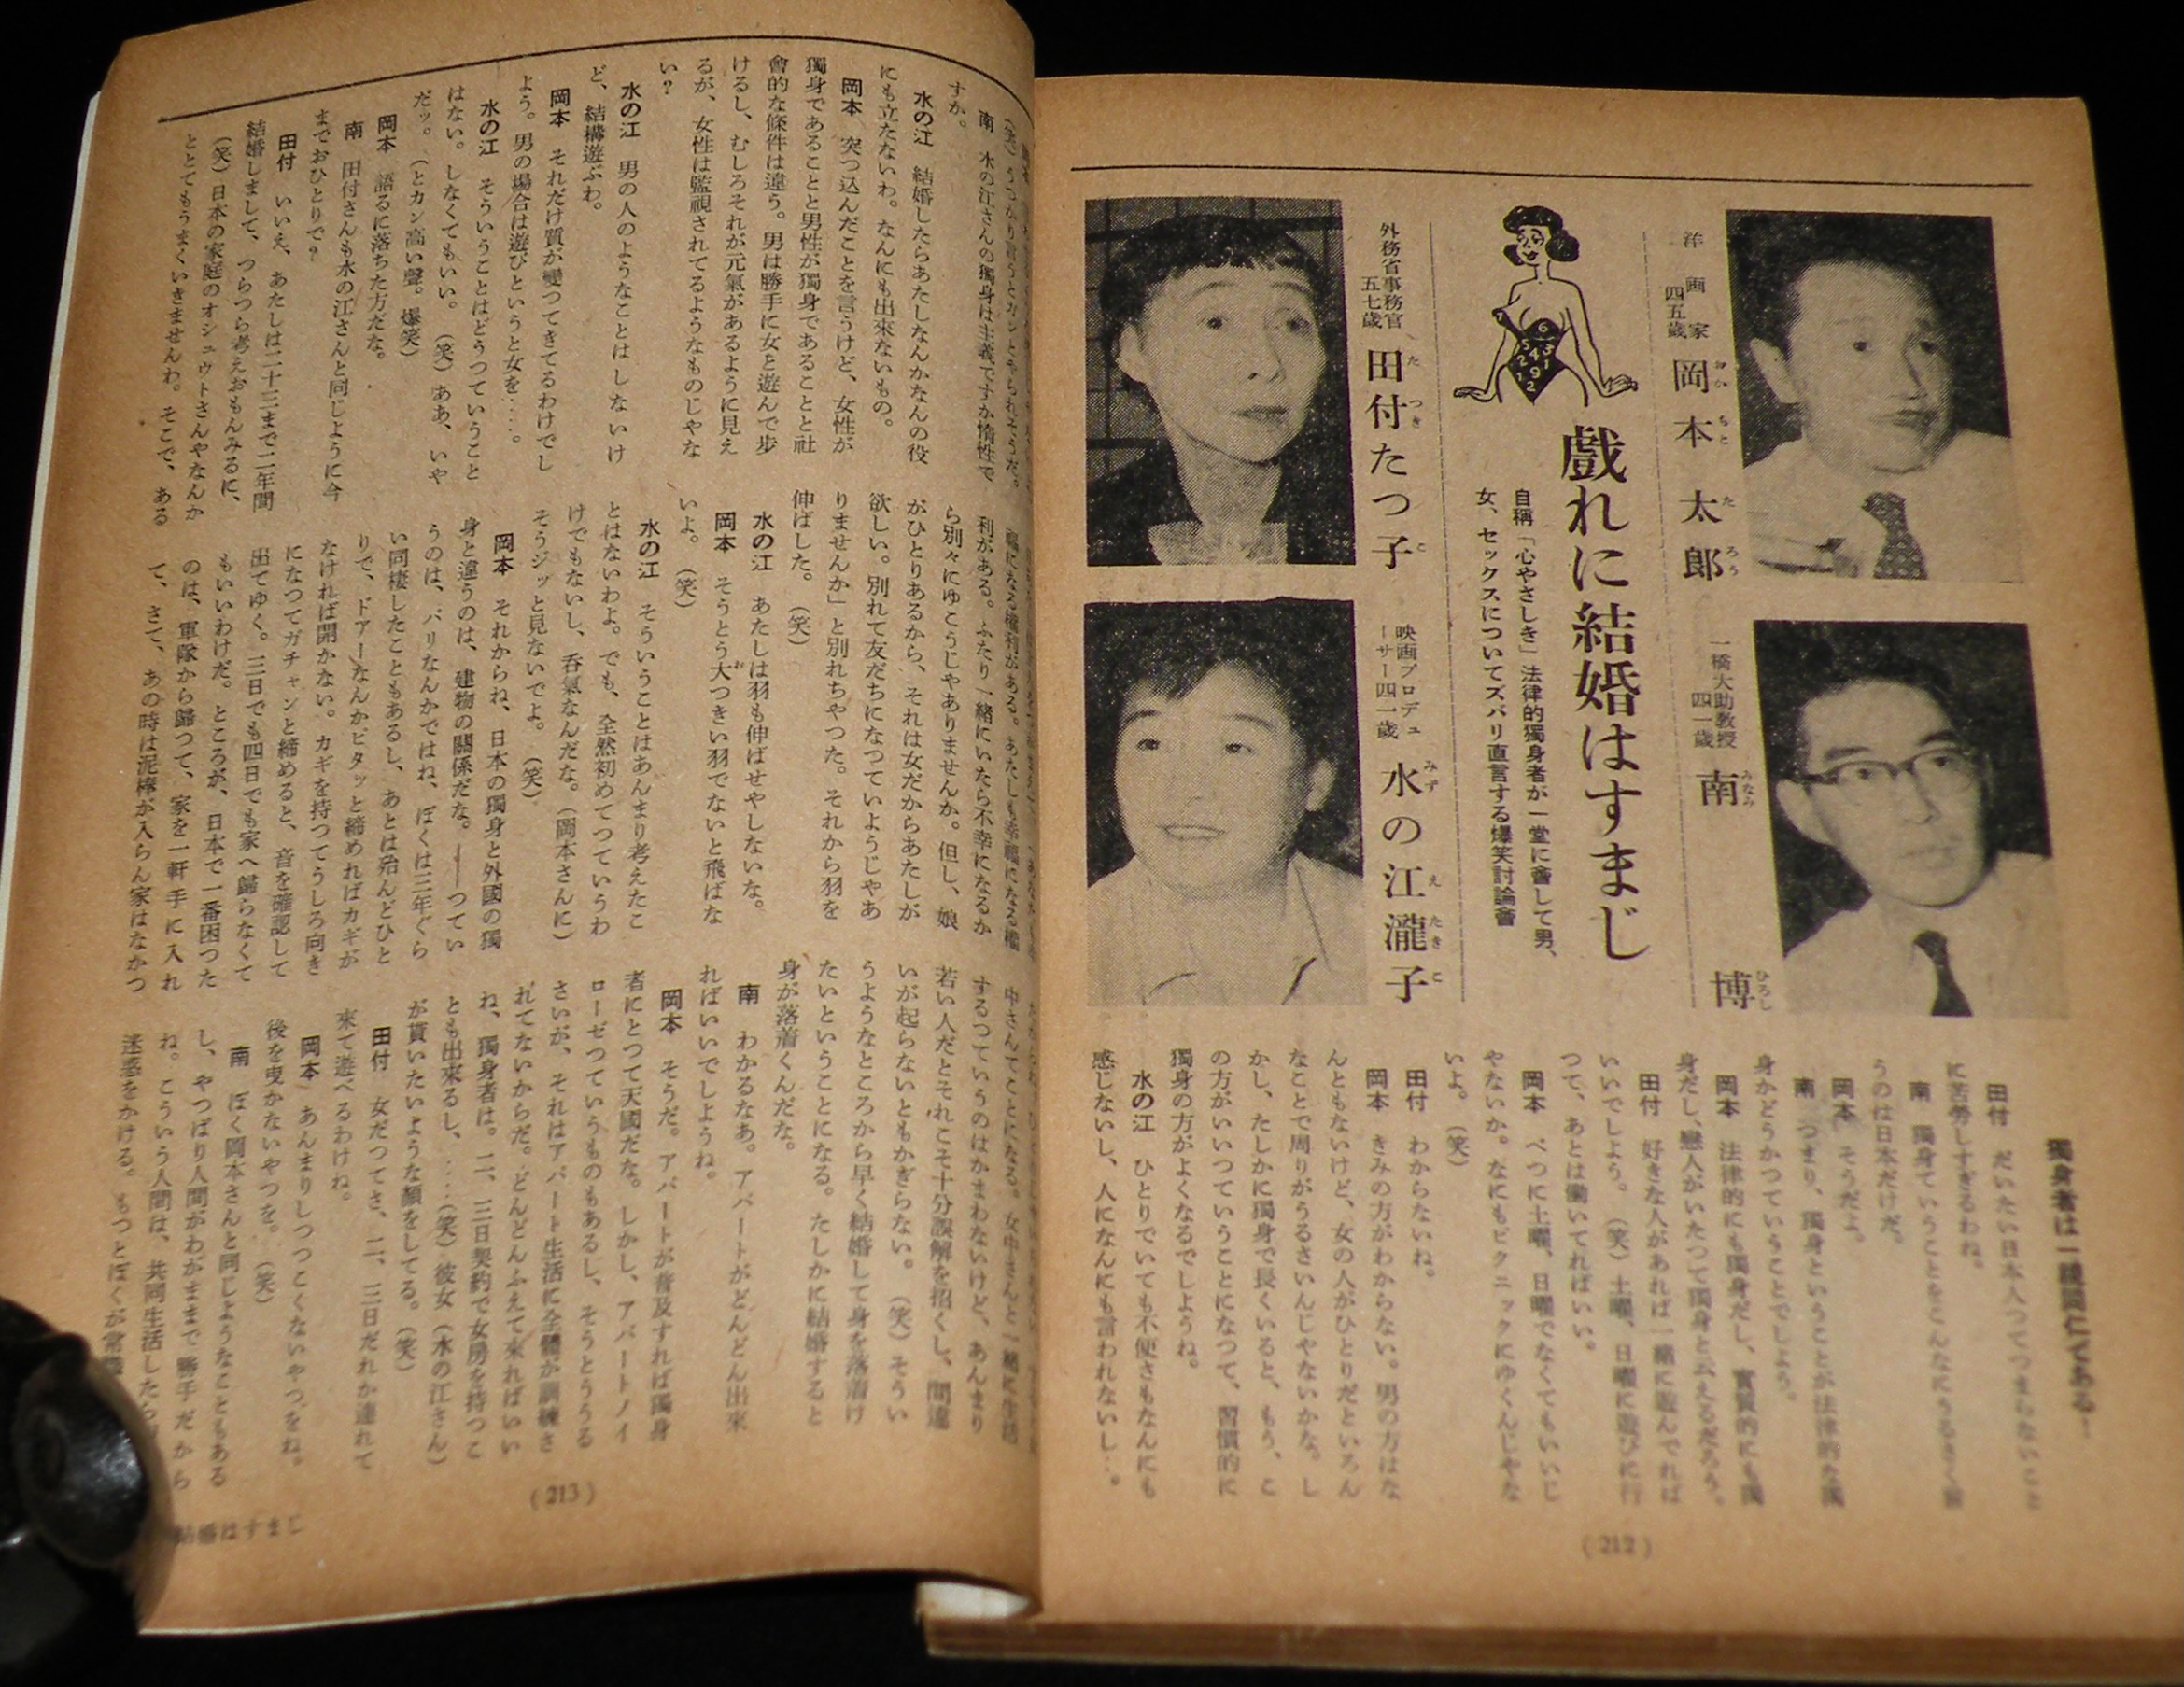 洋画家
四五歳
岡本太郎
おかもとたろう
一橋大助教授
四一歳
南博
みなみひろし
戯れに結婚はすまじ
自稱「心やさしき」法律的獨身者が一堂に會して男、
女、セックスについてズバリ直言する爆笑討論會
外務省事務官
五七歳
田付たつ子
たつきこ
映画プロデュ
ーサー四一歳
水の江瀧子
みずえたきこ
獨身者は一
田付 だいたい日本人つてつまらないこと
に苦勞しすぎるわね。
南 獨身ていうことをこんなにうるさく
うのは日本だけだ。
岡本 そうだよ。
南 つまり、獨身ということが法律的な獨
身かどうかつていうことでしよう。
岡本 法律的にも獨身だし、實質的にも獨
身だし、戀人がいたつて獨身と云えるだろう。
田付 好きな人があれば一緒に遊んでれば
いいでしよう。(笑)土曜、日曜に遊びに行
つて、あとは働いてればいい。
岡本 べつに土曜、日曜でなくてもいいじ
やないか。なにもピクニックにゆくんじやな
いよ。(笑)
田付 わからないね。
岡本 きみの方がわからない。男の方はな
んともないけど、女の人がひとりだといろん
なことで周りがうるさいんじやないかな。し
かし、たしかに獨身で長くいると、もう、こ
の方がいいつていうことになつて、習慣的に
獨身の方がよくなるでしようね。
水の江 ひとりでいても不便さもなんにも
感じないし、人になんにも言われないし…。
(212)
南 水の江さんの獨身は主義ですか惰性で
すか。
水の江 結婚したらあたしなんかなんの役
にも立たないわ。なんにも出來ないもの。
岡本 突つ込んだことを言うけど、女性が
獨身であることと男性が獨身であることと社
會的な條件は違う。男は勝手に女と遊んで歩
けるし、むしろそれが元氣があるように見え
るが、女性は監視されてるようなものじやな
い?
水の江 男の人のようなことはしないけ
ど、結構遊ぶわ。
岡本 それだけ質が變つてきてるわけでし
よう。男の場合は遊びというと女を…。
水の江 そういうことはどうつていうこと
はない。しなくてもいい。(笑)ああ、いや
だッ。(とカン高い聲。爆笑)
岡本 語るに落ちた方だな。
南 田付さんも水の江さんと同じように今
までおひとりで?
田付 いいえ、あたしは二十三まで二年間
結婚しまして、つらつら考えおもんみるに、
(笑)日本の家庭のオシュウトさんやなんか
ととてもうまくいきませんわ。そこで、ある
利がある。ふたり一緒にいたら不幸になるか
ら別々にゆこうじやありませんか。但し、娘
がひとりあるから、それは女だからあたしが
欲しい。別れて友だちになつていようじやあ
りませんか」と別れちやつた。それから羽を
伸ばした。(笑)
水の江 あたしは羽も伸ばせやしないな。
岡本 そうとう大つきい羽でないと飛ばな
いよ。(笑)
水の江 そういうことはあんまり考えたこ
とはないわよ。でも、全然初めてつていうわ
けでもないし、呑氣なんだな。(岡本さんに)
そうジッと見ないでよ。(笑)
岡本 それからね、日本の獨身と外國の獨
身と違うのは、建物の關係だな。――つてい
うのは、パリなんかではね、ぼくは三年ぐら
い同棲したこともあるし、あとは殆んどひと
りで、ドアーなんかピタッと締めればカギが
なければ開かない。カギを持つてうしろ向き
になつてガチャンと締めると、音を確認して
出てゆく。三日でも四日でも家へ歸らなくて
もいいわけだ。ところが、日本で一番困つた
のは、軍隊から歸つて、家を一軒手に入れ
て、さて、あの時は泥棒が入らん家はなかつ
中さんてことになる。女中さんと一緒に生活
するつていうのはかまわないけど、あんまり
若い人だとそれこそ十分誤解を招くし、間違
いが起らないともかぎらない。(笑)そうい
うようなところから早く結婚して身を落着け
たいということになる。たしかに結婚すると
身が落着くんだな。
南 わかるなあ。アパートがどんどん出來
ればいいでしようね。
岡本 そうだ。アパートが普及すれば獨身
者にとつて天國だな。しかし、アパートノイ
ローゼつていうものもあるし、そうとううる
さいが、それはアパート生活に全體が訓練さ
れてないからだ。どんどんふえて來ればいい
ね、獨身者は。二、三日契約で女房を持つこ
とも出來るし、…(笑)彼女(水の江さん)
が貰いたいような顔をしてる。(笑)
田付 女だつてさ、二、三日だれか連れて
来て遊べるわけね。
岡本 あんまりしつつこくないやつをね。
後を曳かないやつを。(笑)
南 ぼく岡本さんと同じようなこともある
し、やつぱり人間がわがままで勝手だから
ね。こういう人間は、共同生活したら
迷惑をかける。もつとぼくが常
(213)
結婚はすまじ